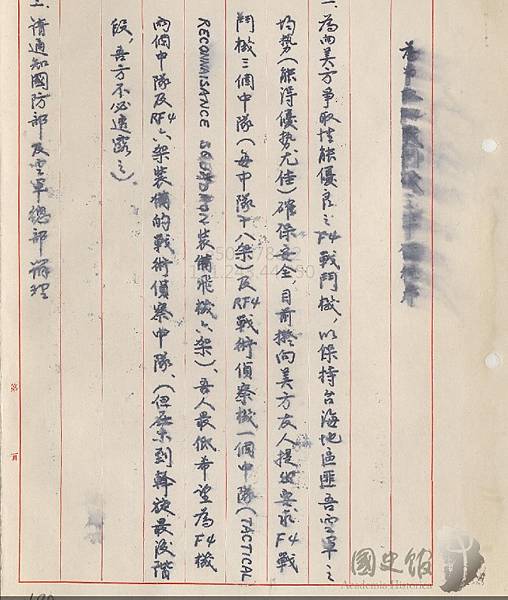 一、為向美方爭取性能優良之F4戰鬥機，以保持台海地區匪吾空軍之
均勢（能得優勢尤佳）確保安全，目前擬向美方友人提出要求F4戰
鬥機三個中隊（每中隊十八架）及RF4戰術偵察機一個中隊（TACTICAL
RECONNAISANCE SQUADRON裝備飛機六架）、吾人最低希望為F4機
兩個中隊及RF4六架裝備的戰術偵察中隊、（但在未到斡旋最後階
段，吾方不必透露之）
二、請通知國防部及空軍總部辦理
第 頁
國史館
Academia Historica